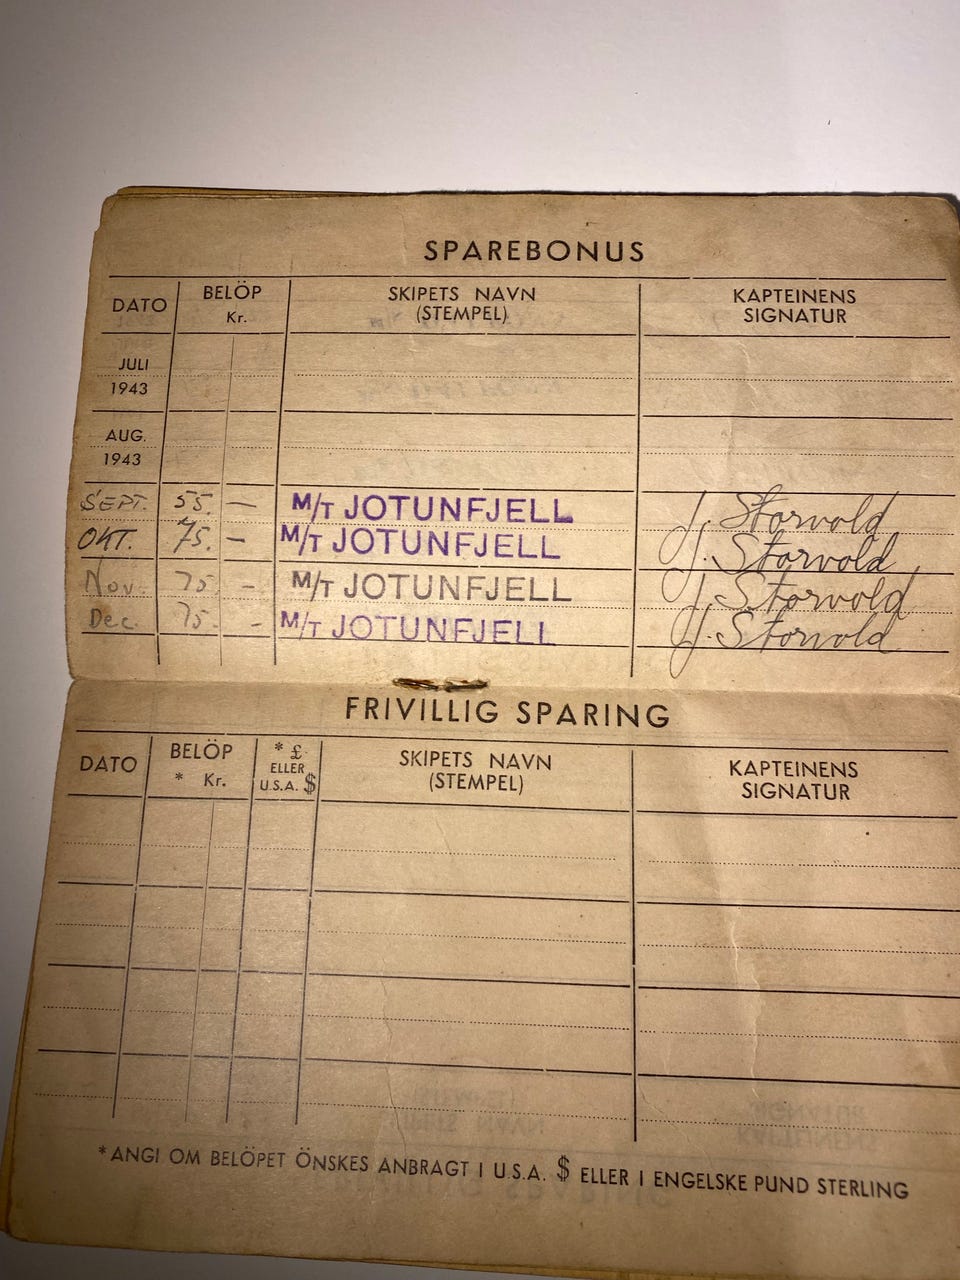 SPAREBONUS
DATO BELÖP Kr. SKIPETS NAVN (STEMPEL) KAPTEINENS SIGNATUR
JULI
1943
AUG.
1943
SEPT. 55. — M/T JOTUNFJELL J. Storvold
OKT. 75. — M/T JOTUNFJELL J. Storvold
Nov. 75 - M/T JOTUNFJELL J. Storvold
Dec. 75. - M/T JOTUNFJELL J. Storvold
FRIVILLIG SPARING
DATO BELÖP * Kr. * £ ELLER U.S.A. $ SKIPETS NAVN (STEMPEL) KAPTEINENS SIGNATUR
*ANGI OM BELÖPET ÖNSKES ANBRAGT I U.S.A. $ ELLER I ENGELSKE PUND STERLING